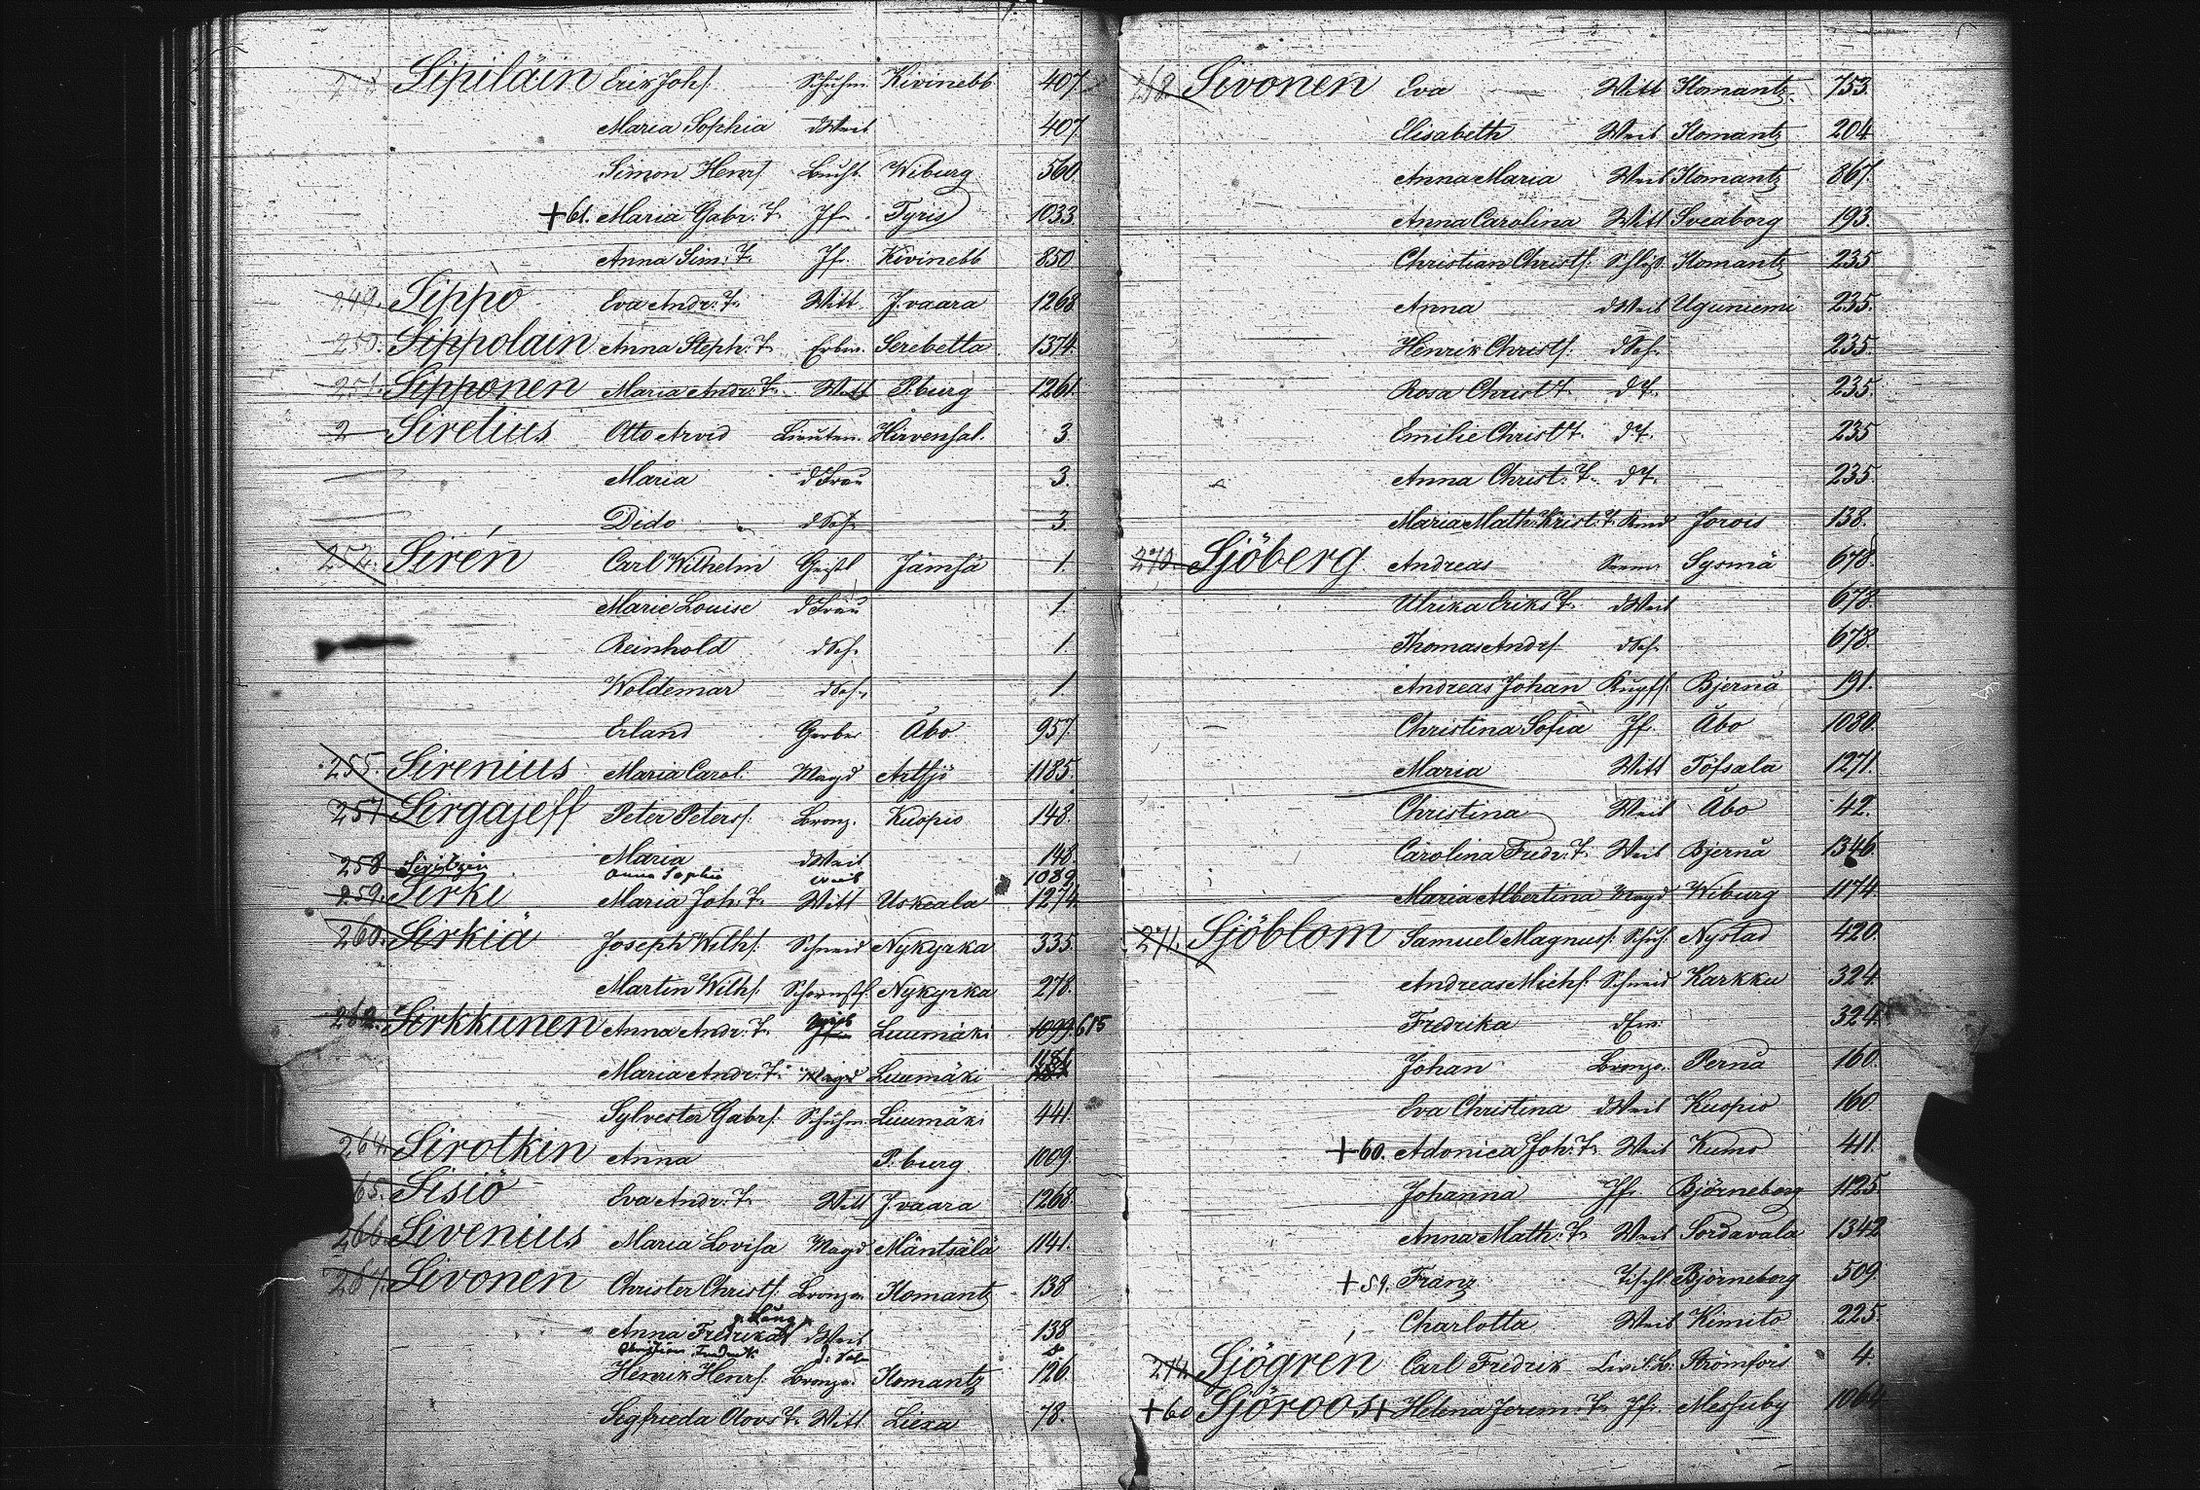 Sipiläin Erik Johs. Schuhm. Kivinebb 407
Maria Sophia d Weib 407
Simon Henrs. Buchb. Wiburg 560
+61. Maria Gabr. T. Jfr. Tyris 1033
Anna Sim. T. Jfr. Kivinebb 850
249. Sippo Eva Andr. T. Witt. J.vaara 1268
250. Sippolain Anna Steph. T. Serebetta 1374
251. Sipponen Maria Andr. T. Witt P.burg 1261.
2 Sirelius Otto Arvid Lieuten. Hirvensal. 3
Maria d Frau 3.
Dido d Soh. 3
252. Sirén Carl Wilhelm Geistl Jämsä 1.
Marie Louise d Frau 1.
Reinhold d Soh. 1.
Woldemar d Soh. 1
Erland Gerber Åbo 957
255. Sirenius Maria Carol. Magd Artsjö 1185.
257. Sirgajeff Peter Peters. Bronz. Kuopio 148.
Maria d Weib 148.
258 Anna Sophia Weib 1089
259. Sirki Maria Joh. T. Witt Uskeala 1274
260. Sirkiä Joseph Wilhs. Schneid Nykyrka 335
Martin Wilhs. Schornstf. Nykyrka 278.
262. Sirkkunen Anna Andr. T. Weib Luumäki 1099. 615
Maria Andr. T. Magd Luumäki 1181
Sylvester Gabrs. Schuhm. Luumäki 441
264. Sirotkin Anna P.burg 1009.
65. Sisiö Eva Andr. T. Witt J.vaara 1268
266. Sivenius Maria Lovisa Magd Mäntsälä 1141.
267. Sivonen Christer Christs. Bronze. Ilomantz 138
Anna Fredrika d Weib 138
Christian Fredrik d. Soh
Henrik Henrs. Bronze. Ilomantz 126.
Segfrieda Olovs T. Witt Liexa 78.
268. Sivonen Eva Witt Ilomantz. 753.
Elisabeth Weib Ilomantz 204
Anna Maria Weib Ilomantz 867.
Anna Carolina Witt Sveaborg 193.
Christian Christs. Schloss. Ilomantz 235
Anna d Weib Uguniemi 235.
Henrik Christs. d Soh. 235.
Rosa Christ T. d T. 235.
Emilie Christ T. d T. 235
Anna Christ. T. d T. 235.
Maria Math. Krist. T. Kind Jorois 138.
270. Sjöberg Andreas Seem. Sysmä 678.
Ulrika Eriks T. d Weib 678.
Thomas Andrs. d Soh. 678.
Andreas Johan Kupfs. Bjernå 191.
Christina Sofia Jfr. Åbo 1080.
Maria Witt Töfsala 1271.
Christina Weib Åbo 42.
Carolina Fredr. T. Weib Bjernå 1346.
Maria Albertina Magd Wiburg 1174
271. Sjöblom Samuel Magnuss. Schuh. Nystad 420.
Andreas Michs. Schneid Karkku 324.
Fredrika d Frau 324.
Johan Bronze. Pernå 160.
Eva Christina d Weib Kuopio 160
+60. Adonica Joh. T. Weib Kumo 411.
Johanna Jfr. Björneborg 1125.
Anna Math. T. Weib Sordavala 1342
+59. Franz Tischl Björneborg 509.
Charlotta Weib Kimito 225.
274 Sjögrén Carl Fredrik Strömfors 4.
+60 Sjöroos + Helena Jerem. T. Jfr. Messuby 1064